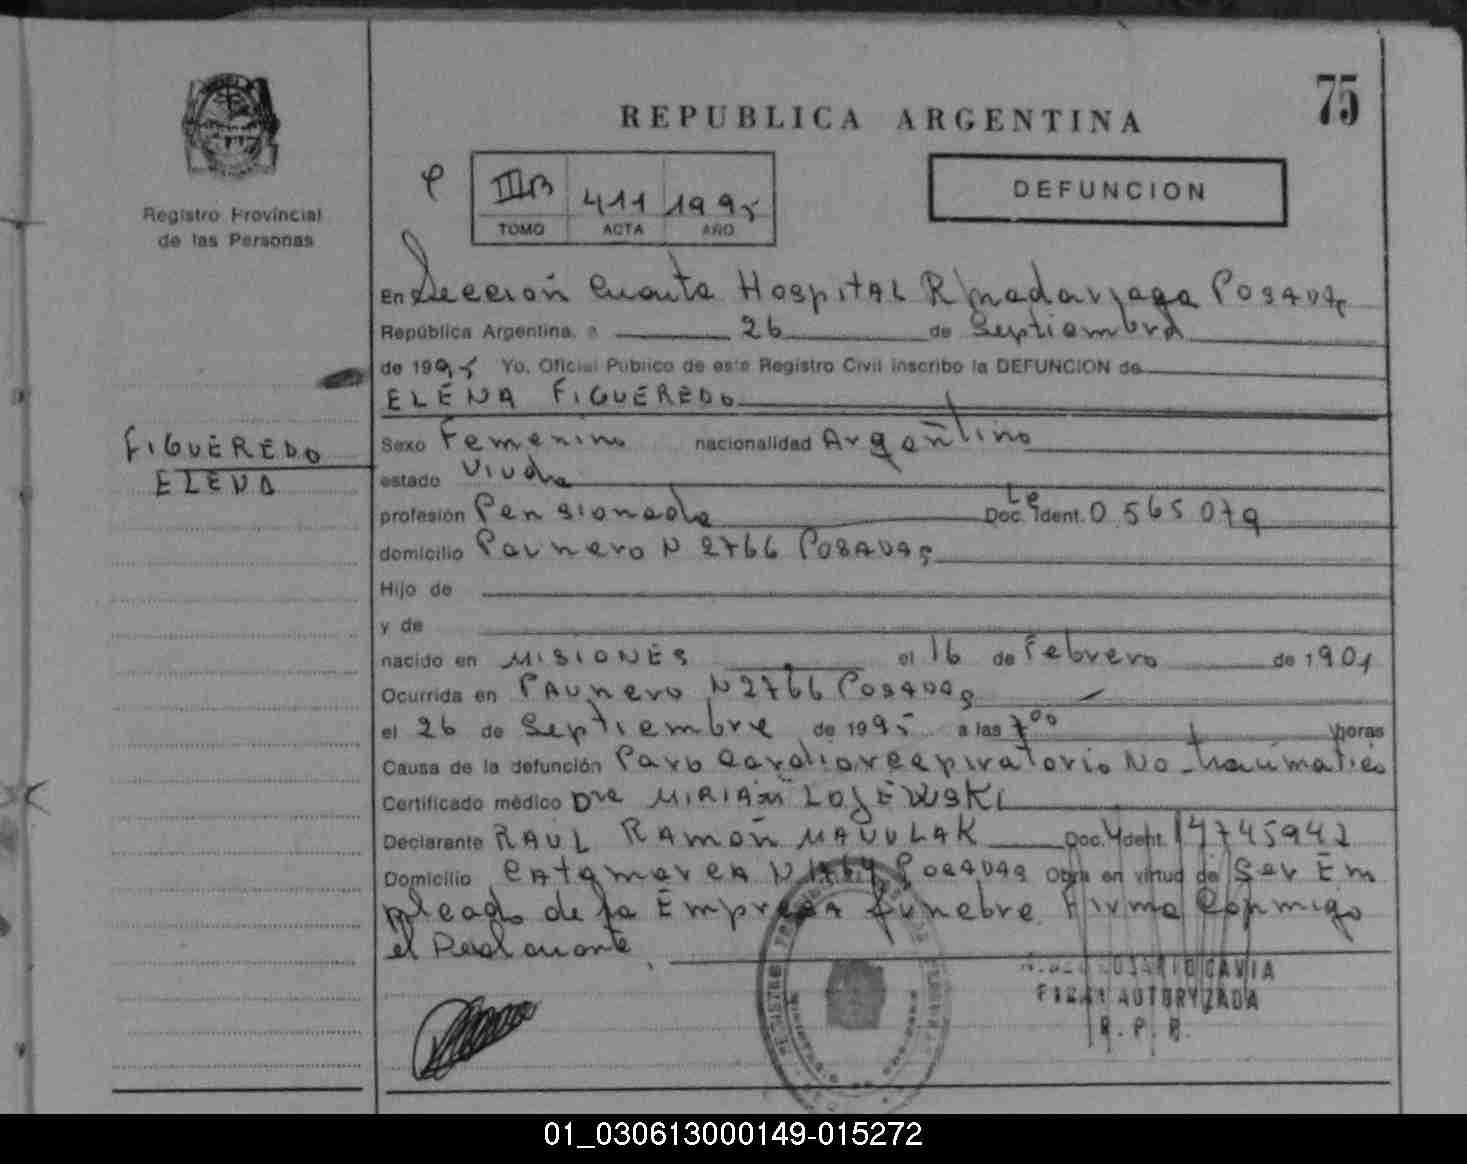 75
REPUBLICA ARGENTINA
DEFUNCION
III B 411 1995
TOMO ACTA AÑO
Registro Provincial
de las Personas
En Sección Cuarta Hospital R Madariaga Posadas
República Argentina, a 26 de Septiembre
de 1995 Yo, Oficial Público de este Registro Civil inscribo la DEFUNCION de
ELENA FIGUEREDO
FIGUEREDO
ELENA
Sexo Femenino nacionalidad Argentino
estado Viuda
profesión Pensionada Doc. Ident. Le 0.565.079
domicilio Paunero N 2766 Posadas
Hijo de
y de
nacido en MISIONES el 16 de Febrero de 1901
Ocurrida en PAUnero N 2766 Posadas
el 26 de Septiembre de 1995 a las 7 00 horas
Causa de la defunción Paro Cardiorrespiratorio No-traumatico
Certificado médico Dra MIRIAM LOJEWSKI
Declarante RAUL RAMON MAVULAK Doc. Ident. 14745942
Domicilio CAtamarca N Posadas Obra en virtud de Ser Em
pleado de la Empresa funebre. Firma Conmigo
el Declarante.
ROSARIO CAVIA
FIRMA AUTORIZADA
R. P. P.
01_030613000149-015272